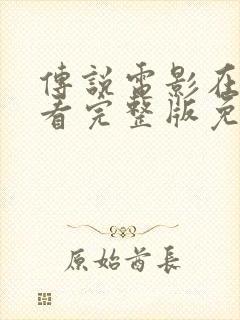 傳說電影在
看完整版免
原始酋長